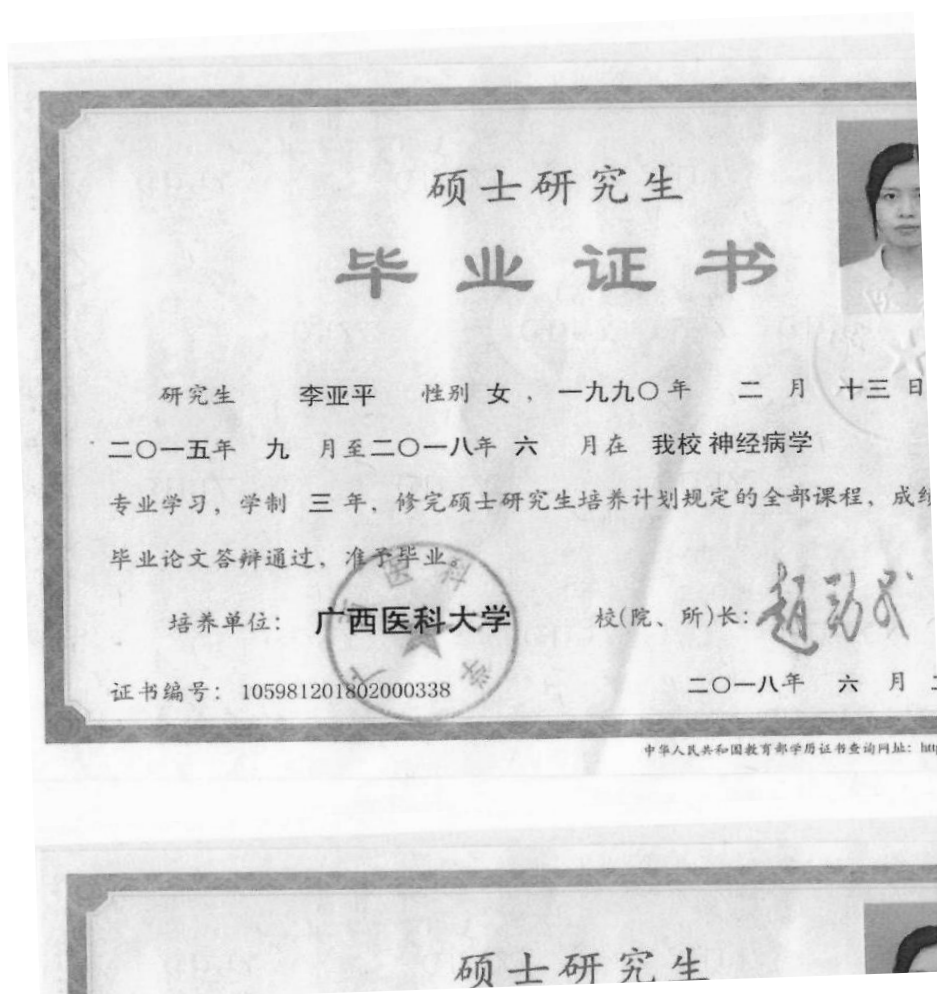 硕士研究生
毕业证书
研究生 李亚平 性别 女，一九九〇年 二 月 十三 日
二〇一五年 九 月至二〇一八年 六 月在 我校 神经病学
专业学习，学制 三 年，修完硕士研究生培养计划规定的全部课程，成绩
毕业论文答辩通过，准予毕业。
培养单位：广西医科大学 校(院、所)长：赵劲民
证书编号：105981201802000338 二〇一八年 六 月
中华人民共和国教育部学历证书查询网址：http
硕士研究生